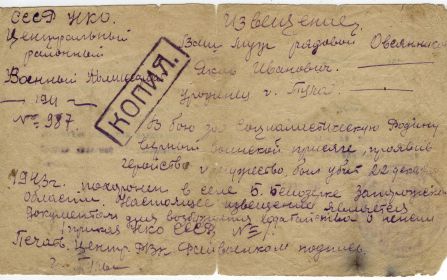 СССР НКО.
Центральный
районный
Военный Комиссар
194
№ 987
КОПИЯ.
Извещение,
Ваш муж рядовой Овсянников
Яков Иванович.
уроженец г. Тула
В бою за Социалистическую Родину
верный воинской присяге, проявив
геройство и мужество, был убит 22 декабря
1943г. похоронен в селе Б. Белозерке Запорожской
области. Настоящее извещение является
документом для возбуждения ходатайства о пенсии
(приказ НКО СССР №
Печать. Центр. РВК Райвоенком подпись.